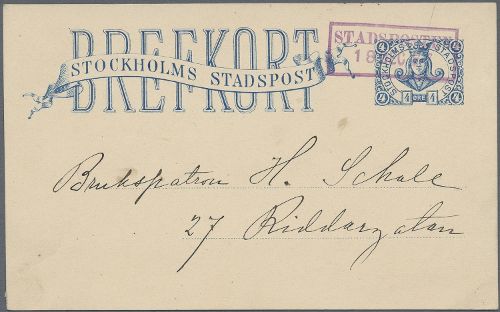 BREFKORT
STOCKHOLMS STADSPOST
STADSPOSTEN
18
STOCKHOLMS STADSPOST
4 4
4 ÖRE 4
4 4
Brukspatron H. Schale
27 Riddargatan